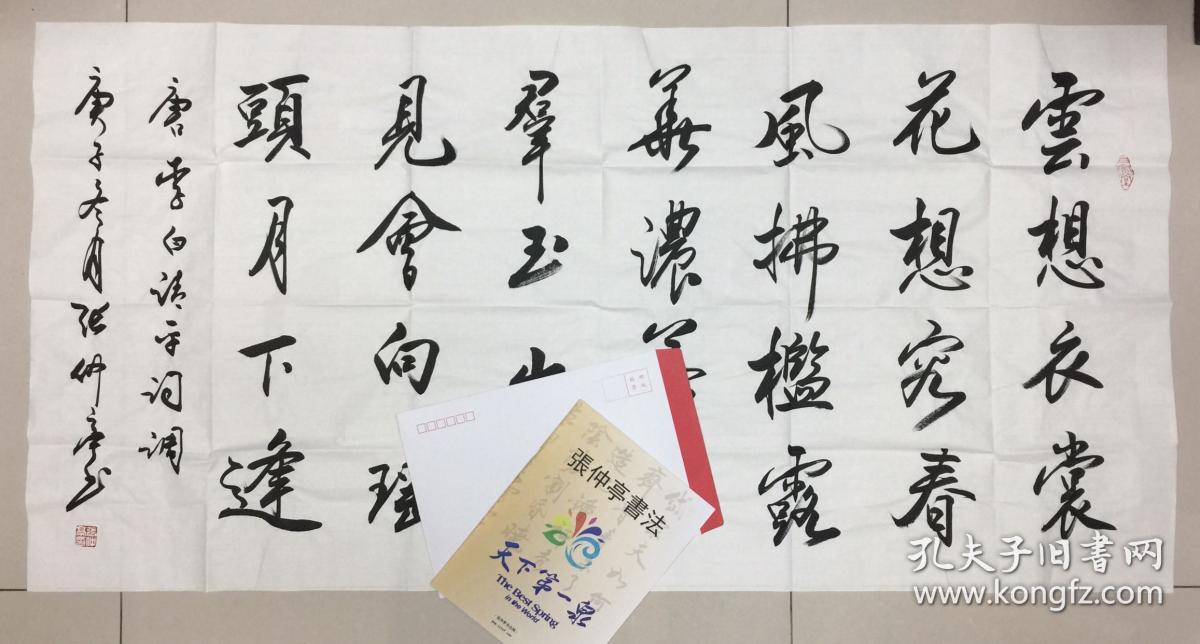 雲想衣裳
花想容春
風拂檻露
華濃
羣玉山
見會向瑤
頭月下逢
唐李白清平詞調
庚子冬月張仲亭书
張仲亭書法
天下第一泉
The Best Spring
in the World
孔夫子旧書网
www.kongfz.com